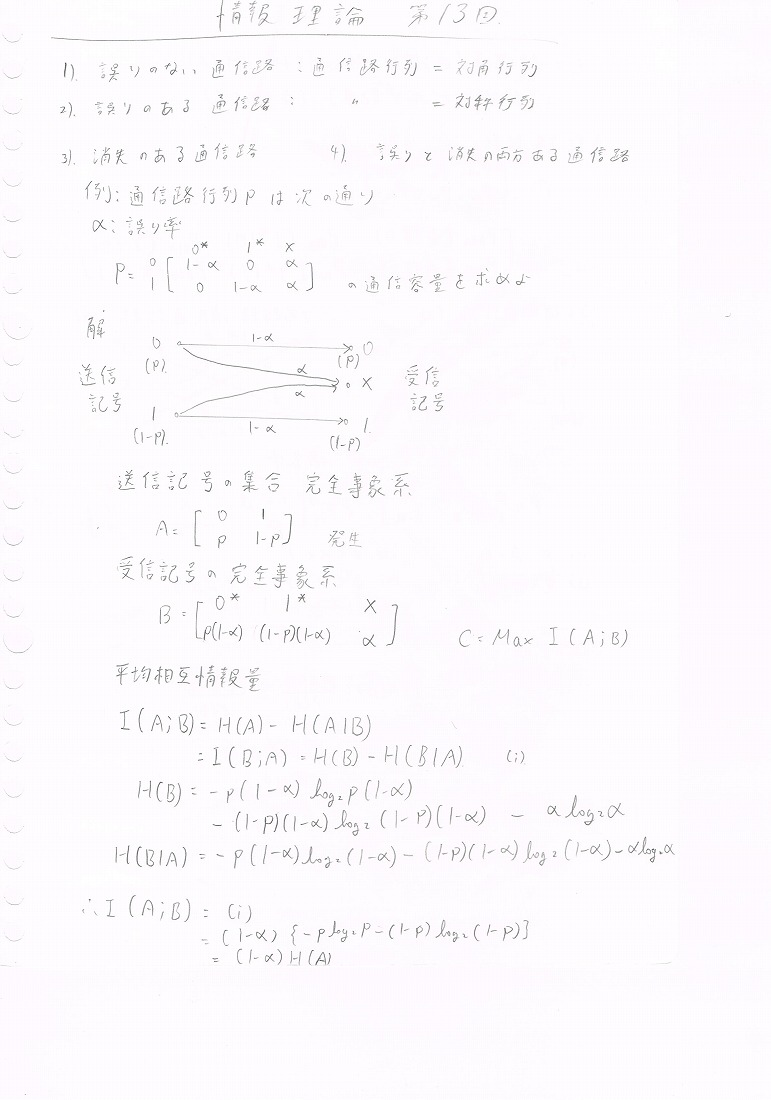 情報理論 第13回
1). 誤りのない通信路:通信路行列 = 対角行列
2). 誤りのある通信路: 〃 = 対称行列
3). 消失のある通信路 4). 誤りと消失の両方ある通信路
例:通信路行列Pは次の通り
α:誤り率
0* 1* X
P= 0 [ 1-α 0 α
1 0 1-α α ] の通信容量を求めよ
解
0 1-α 0
(P) α (P)
送信 X 受信
記号 α 記号
1 1-α 1
(1-P) (1-P)
送信記号の集合 完全事象系
A= [ 0 1
P 1-P ] 発生
受信記号の完全事象系
B = [ 0* 1* X
P(1-α) (1-P)(1-α) α ] C = Max I(A;B)
平均相互情報量
I(A;B) = H(A) - H(A|B)
= I(B;A) = H(B) - H(B|A) (i)
H(B) = -P(1-α) log₂P(1-α)
- (1-P)(1-α) log₂(1-P)(1-α) - α log₂α
H(B|A) = -P(1-α)log₂(1-α) - (1-P)(1-α)log₂(1-α) - αlog₂α
∴ I(A;B) = (i)
= (1-α) {-P log₂P - (1-P) log₂(1-P)}
= (1-α) H(A)